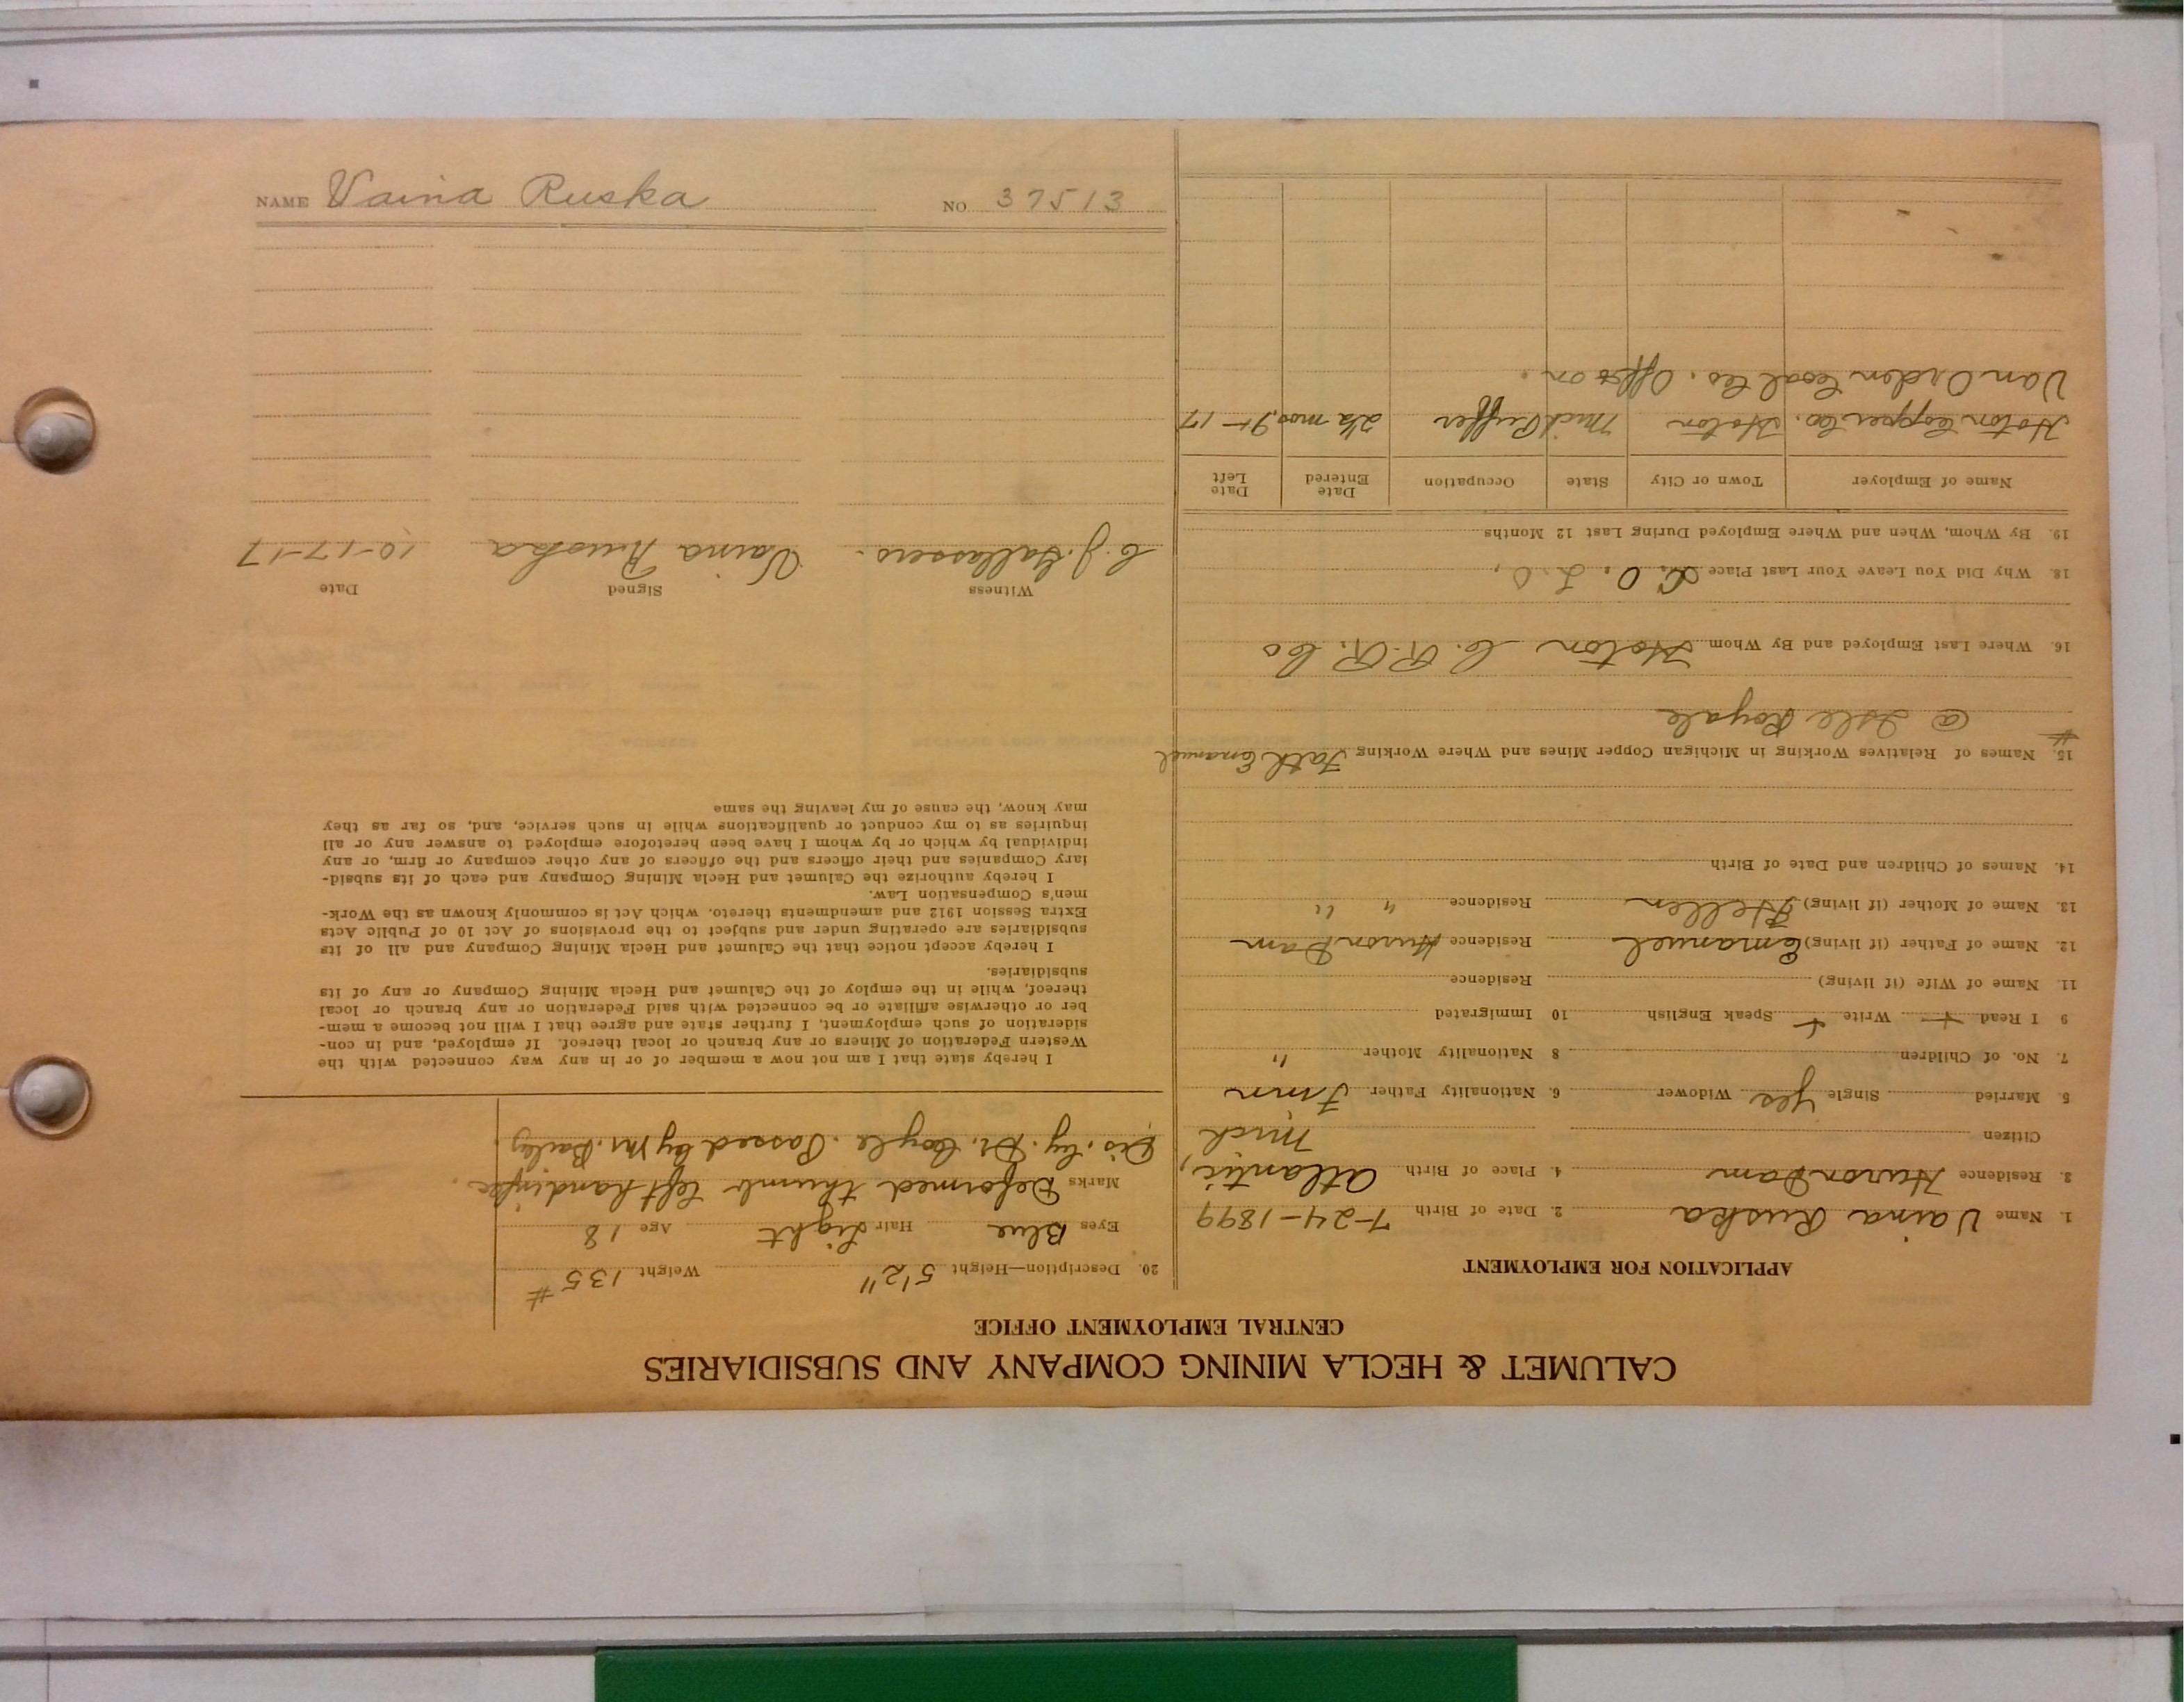 CALUMET & HECLA MINING COMPANY AND SUBSIDIARIES
CENTRAL EMPLOYMENT OFFICE
APPLICATION FOR EMPLOYMENT
1. Name Vaina Ruska 2. Date of Birth 7-24-1899
3. Residence Huron Dam 4. Place of Birth Atlantic,
Citizen Mich
5. Married Single Yes Widower 6. Nationality Father Finn
7. No. of Children 8 Nationality Mother "
9 I Read + Write + Speak English 10 Immigrated
11. Name of Wife (if living) Residence
12. Name of Father (if living) Emanuel Residence Huron Dam
13. Name of Mother (if living) Hellen Residence " "
14. Names of Children and Date of Birth
15. Names of Relatives Working in Michigan Copper Mines and Where Working Fath Emanuel
# @ Isle Royale
16. Where Last Employed and By Whom Hoton C. R. R. Co
18. Why Did You Leave Your Last Place
19. By Whom, When and Where Employed During Last 12 Months
Name of Employer Town or City State Occupation Date Entered Date Left
Hoton Copper Co. Hoton Mich 2½ mos 9-17
Van Orden Coal Co. Off & on.
20. Description—Height 5'2" Weight 135 #
Eyes Blue Hair Light Age 18
Marks Deformed thumb left hand
Dis. by. Dr. Coyle. Passed by Mr. Bailey.
I hereby state that I am not now a member of or in any way connected with the
Western Federation of Miners or any branch or local thereof. If employed, and in con-
sideration of such employment, I further state and agree that I will not become a mem-
ber or otherwise affiliate or be connected with said Federation or any branch or local
thereof, while in the employ of the Calumet and Hecla Mining Company or any of its
subsidiaries.
I hereby accept notice that the Calumet and Hecla Mining Company and all of its
subsidiaries are operating under and subject to the provisions of Act 10 of Public Acts
Extra Session 1912 and amendments thereto, which Act is commonly known as the Work-
men's Compensation Law.
I hereby authorize the Calumet and Hecla Mining Company and each of its subsid-
iary Companies and their officers and the officers of any other company or firm, or any
individual by which or by whom I have been heretofore employed to answer any or all
inquiries as to my conduct or qualifications while in such service, and, so far as they
may know, the cause of my leaving the same
Witness Signed Date
C. J. Vaina Ruska 10-17-17
NAME Vaina Ruska NO. 37513